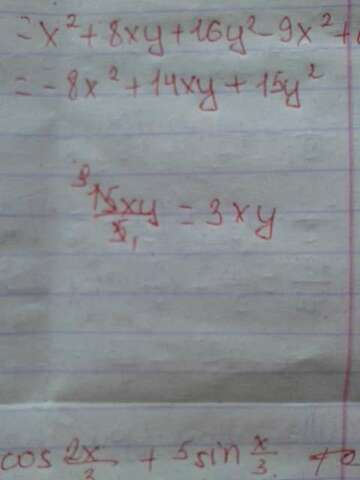 = x² + 8xy + 16y² - 9x² +
= - 8x² + 14xy + 15y²
3 15xy / 5 1 = 3xy
cos 2x/3 + 5 sin x/3